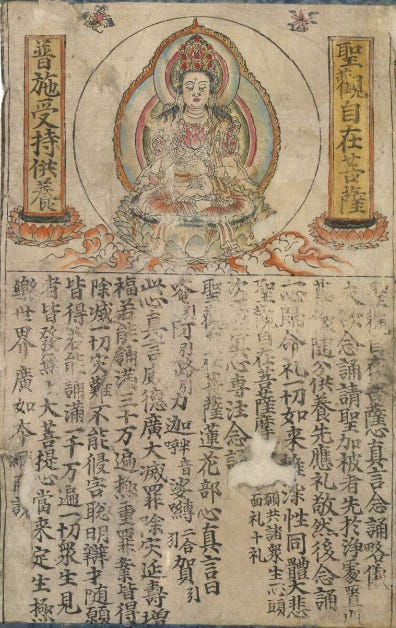 聖觀自在菩薩
普施受持供養
聖觀自在菩薩心真言念誦略儀
夫欲念誦請聖加被者先於淨處置此
隨分供養先應礼敬然後念誦
一心歸命礼一切如来離染性同體大悲
聖觀自在菩薩摩
願共諸衆生
面礼十礼
次冥心專注念誦
聖觀 菩薩蓮花部心真言曰
唵引阿引路引力迦半音娑嚩二合賀引
此心真言威德廣大滅罪除灾延壽增
福若能誦滿三十万遍極重罪業皆得
除滅一切灾難不能侵害聡明辯才隨願
皆得若能誦滿一千万遍一切衆生見
者皆發無上大菩提心當来定生極
樂世界廣如本